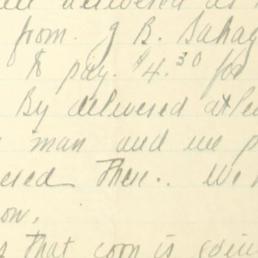 delivered
from. J B.
to pay. $4.30 for
By delivered at
man and we p
ered there.. We
ow,
that corn is goin